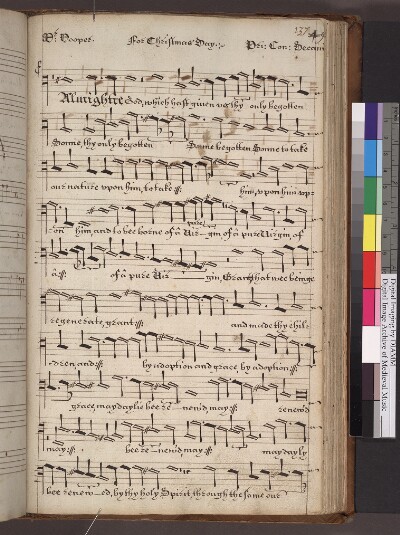 Mr. Hooper. For Christmas Day: Pri: Con: Decani
Almightie God, which hast given us thy only begotten
Sonne, thy only begotten Sonne begotten Sonne to take
our nature upon him, to take :||: him, upon him up=
on him, and to bee borne of a Vir- gin of a pure Virgin of
pure
a :||: of a pure Vir- gin, Graunt that wee beinge
regenerate, graunt :||: and made thy chil=
dren, and :||: by adoption and grace, by adoption :||:
grace, may daylie bee re- newed, may :||: renewd
may :||: bee re- newed, may :||: may dayly
bee renew- ed, by thy holy Spirit, through the same our
Digital Imaging by DIAMM
Digital Image Archive of Medieval Music